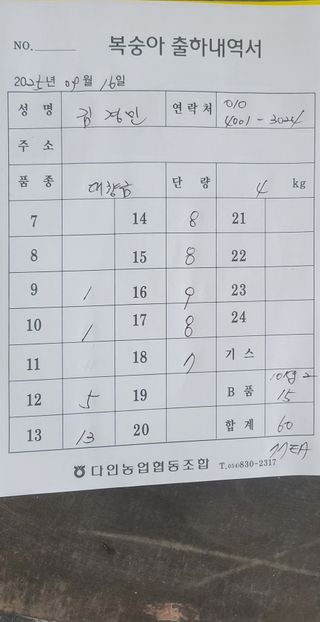 NO.
복숭아 출하내역서
2025년 09월 16일
성 명 김경민 연락처 010
4001 - 3024
주 소
품 종 대향금 단 량 4 kg
7 14 8 21
8 15 8 22
9 1 16 9 23
10 1 17 8 24
11 18 7 기 스
12 5 19 B 품 15
13 13 20 합 계 60
77EA
다인농업협동조합 T.(054)830-2317